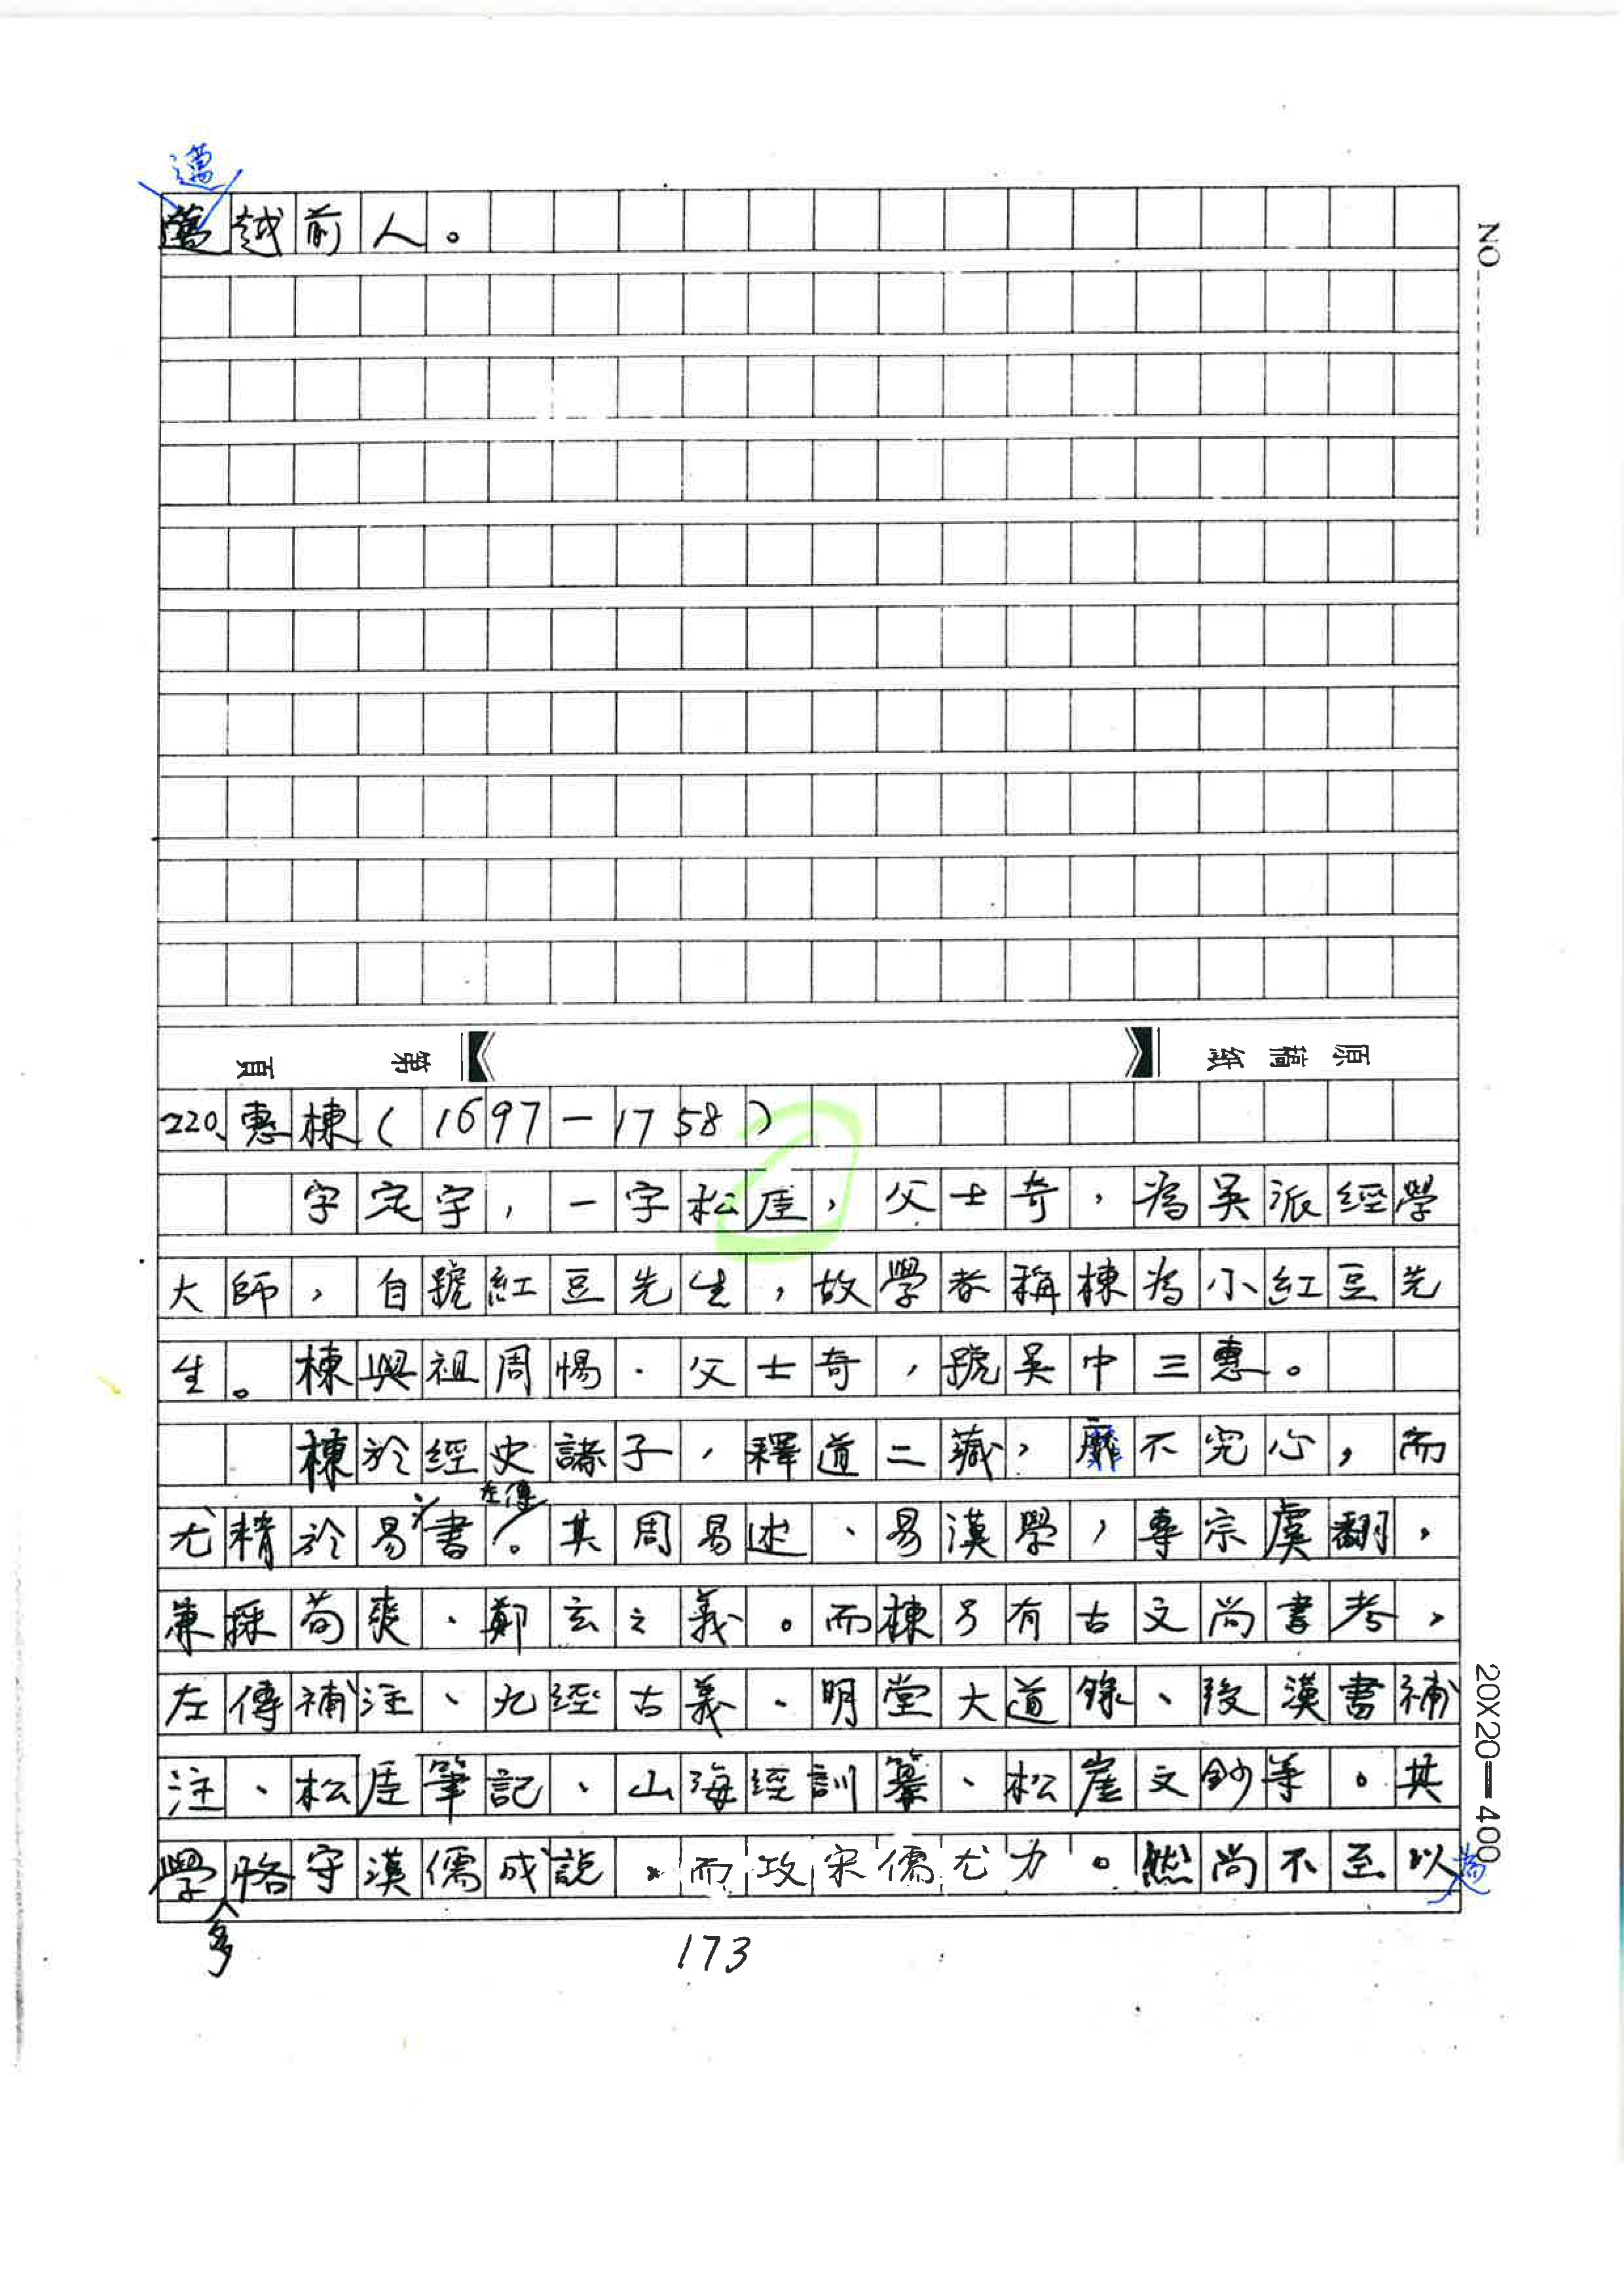 邁
邁越前人。
NO
原稿紙
第 頁
220、惠棟(1697-1758)
字定宇,一字松厓,父士奇,為吳派經學
大師,自號紅豆先生,故學者稱棟為小紅豆先
生。棟與祖周惕、父士奇,號吳中三惠。
棟於經史諸子,釋道二藏,靡不究心,而
左傳
尤精於易、書。其周易述、易漢學,專宗虞翻,
兼採荀爽、鄭玄之義。而棟另有古文尚書考,
左傳補注、九經古義、明堂大道錄、後漢書補
注、松厓筆記、山海經訓纂、松崖文鈔等。其
學恪守漢儒成說,而攻宋儒尤力。然尚不至以
多
為
20X20=400
173